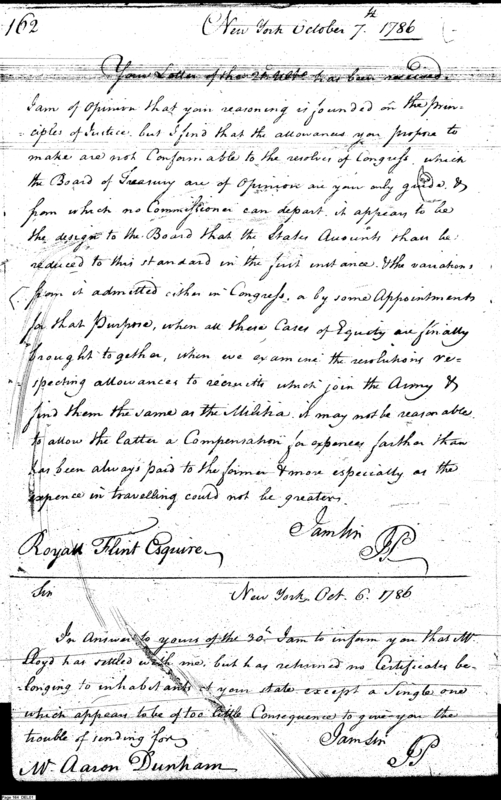 162
New York October 7th 1786
Your Letter of the 2d has been received.
I am of Opinion that your reasoning is founded on the prin-
ciples of Justice, but I find that the allowances you propose to
make are not Conformable to the resolves of Congress, which
the Board of Treasury are of Opinion are your only guide, &
from which no Commissioner can depart. it appears to be
the design to the Board that the States Accounts shall be
reduced to this standard in the first instance. & the variations
from it admitted either in Congress, or by some Appointments
for that Purpose, when all these Cases of Equity are finally
brought together, when we examine the resolutions re-
specting allowances to recruits which join the Army &
find them the same as the Militia, it may not be reasonable
to allow the latter a Compensation for expences farther than
has been always paid to the former & more especially as the
expence in travelling could not be greater.
I am Sir
Royall Flint Esquire
Sir New York Oct. 6. 1786
In Answer to yours of the 30th I am to inform you that Mr
Lloyd has settled with me, but has returned no Certificates be-
longing to inhabitants of your state except a Single one
which appears to be of too little Consequence to give you the
trouble of sending for
I am Sir
Mr Aaron Dunham